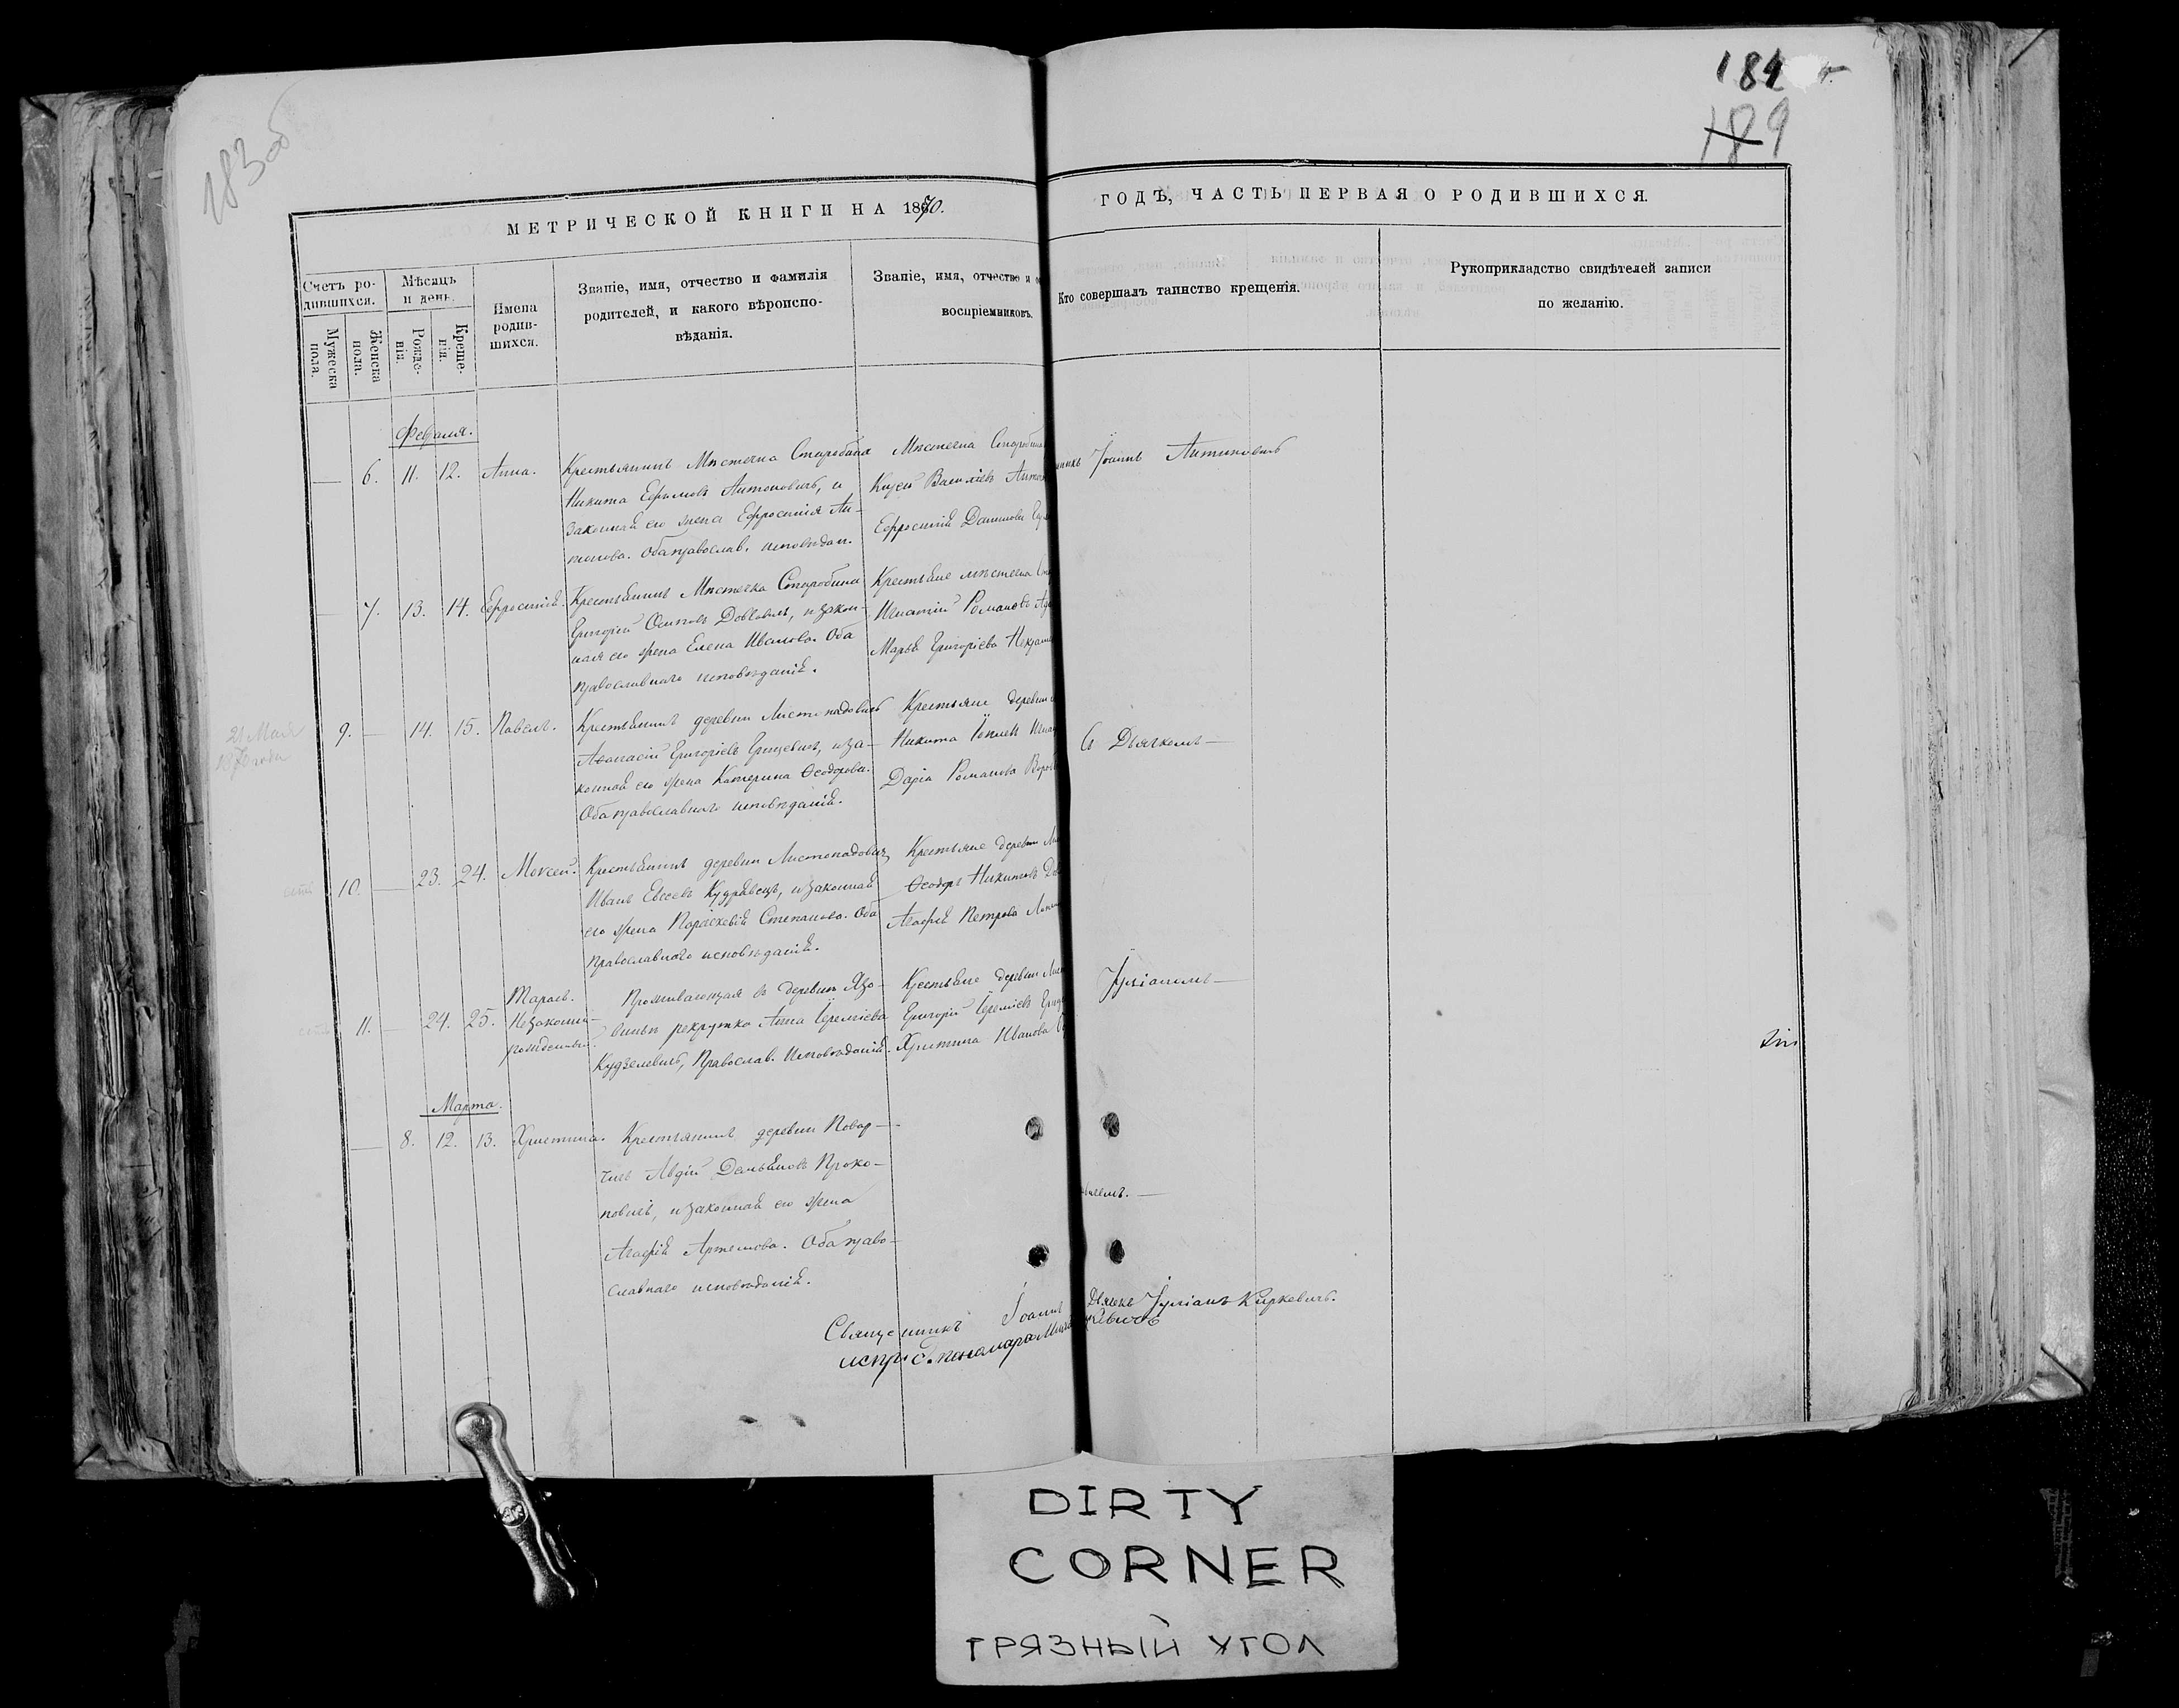 183 об
184
189
МЕТРИЧЕСКОЙ КНИГИ НА 1870.
ГОДЪ, ЧАСТЬ ПЕРВАЯ О РОДИВШИХСЯ.
Счетъ ро-
дившихся.
Мужеска
пола.
Женска
пола.
Мѣсяцъ
и день.
Рожде-
нія.
Креще-
нія.
Имена
родив-
шихся.
Званіе, имя, отчество и фамилія
родителей, и какого вѣроиспо-
вѣданія.
Званіе, имя, отчество и
воспріемниковъ.
Кто совершалъ таинство крещенія.
Рукоприкладство свидѣтелей записи
по желанію.
Февраля.
— 6. 11. 12. Анна.
Крестьянинъ Мѣстечка Старобина
Никита Ефимовъ Антоновичъ, и
законная его жена Ефросинія Ан-
тонова. Оба православ. исповѣдан.
Мѣстечка
Василіевъ
Ефросинія Данилова
Іоаннъ Антиповичъ
— 7. 13. 14. Ефросинія.
Крестьянинъ Мѣстечка Старобина
Григорій Осиповъ Довголь, и закон-
ная его жена Елена Иванова. Оба
православнаго исповѣданія.
Крестьяне мѣстечка
Игнатій Романовъ
Марья Григоріева
21 Мая
1870 года
9. — 14. 15. Павелъ.
Крестьянинъ деревни Листопадовичъ
Аѳанасій Григоріевъ Грицевичъ, и за-
конная его жена Катерина Ѳеодорова.
Оба православнаго исповѣданія.
Крестьяне деревни
Никита
Дарія Романова
Съ Дьячкомъ —
10. — 23. 24. Моисей.
Крестьянинъ деревни Листопадовичъ
Иванъ Евсеевъ Кудравецъ, и законная
его жена Параскевія Степанова. Оба
православнаго исповѣданія.
Крестьяне деревни
Ѳеодоръ Никитовъ
Агафія Петрова
11. — 24. 25. Тарасъ.
Незаконно-
рожденный.
Проживающая въ деревнѣ Язо-
винѣ рекрутка Анна Іереміева
Кудзелевичъ, Православ. Исповѣданія.
Крестьяне деревни
Григорій Іереміевъ
Христина Иванова
Іуліаномъ —
Марта.
— 8. 12. 13. Христина.
Крестьянинъ деревни Повар-
чицъ Авдій Демьяновъ Проко-
повичъ, и законная его жена
Агафія Артемова. Оба право-
славнаго исповѣданія.
Священникъ Іоаннъ
Дьячекъ Іуліанъ Киркевичъ.
DIRTY
CORNER
ГРЯЗНЫЙ УГОЛ